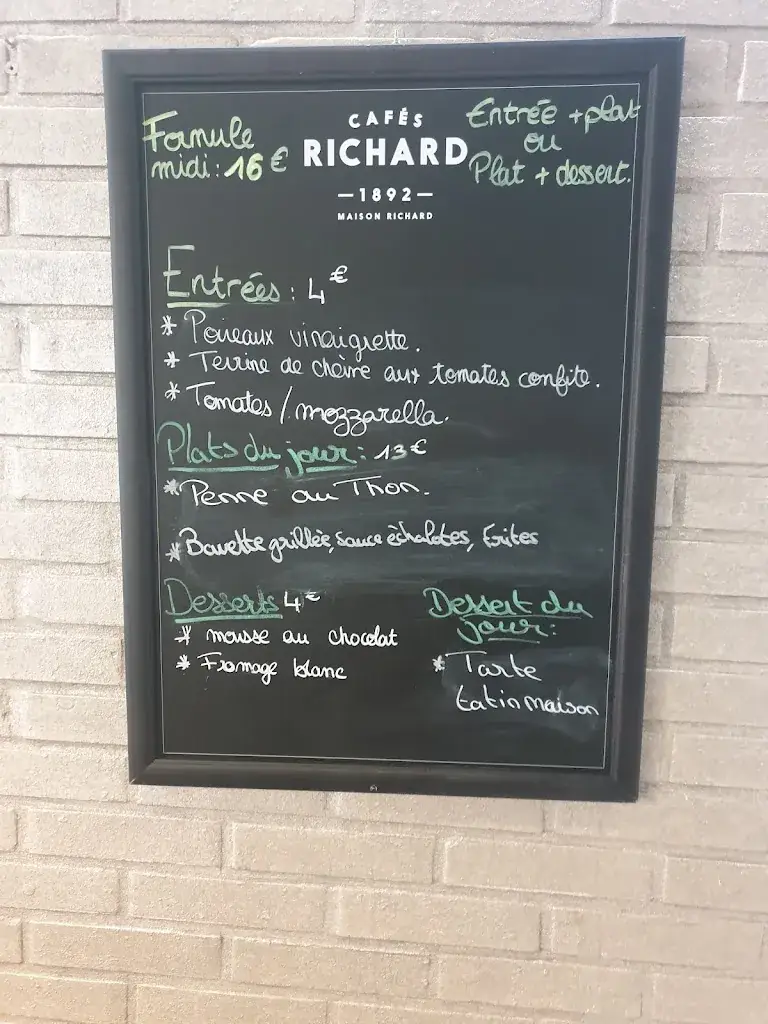 Formule
midi : 16 €
CAFÉS
RICHARD
—1892—
MAISON RICHARD
Entrée + plat
ou
Plat + dessert.
Entrées : 4€
* Poireaux vinaigrette.
* Terrine de chèvre aux tomates confite.
* Tomates / mozzarella.
Plats du jour : 13€
* Penne au Thon.
* Bavette grillée, sauce échalotes, frites
Desserts 4€
* mousse au chocolat
* Fromage blanc
Dessert du
jour :
* Tarte
tatin maison